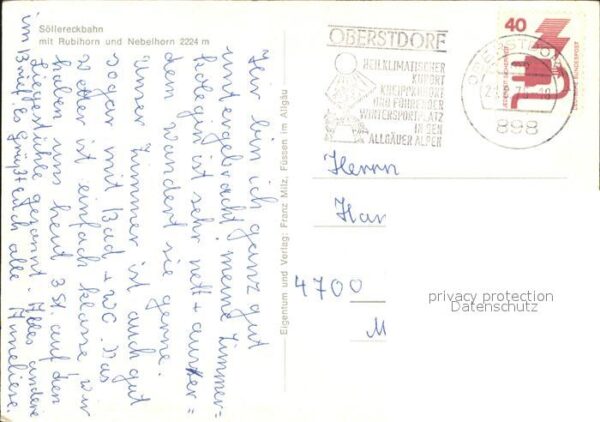 Söllereckbahn
mit Rubihorn und Nebelhorn 2224 m
Hier bin ich ganz gut
untergebracht, meine Zimmer=
kollegin ist sehr nett + außer=
dem wandert sie gerne.
Unser Zimmer ist auch gut
sogar mit Bad + WC. Das
Wetter ist einfach klasse, wir
haben uns heut 3 St. auf den
Liegestühle gesonnt. Alles andere
im Brief. Es grüßt Euch alle Anneliese.
Eigentum und Verlag: Franz Milz, Füssen im Allgäu
OBERSTDORF
HEILKLIMATISCHER
KURORT
KNEIPPKURORT
UND FÜHRENDER
WINTERSPORTPLATZ
IN DEN
ALLGÄUER ALPEN
OBERSTDORF
898
40
DEUTSCHE BUNDESPOST
Herrn
Har
4700
M
privacy protection
Datenschutz